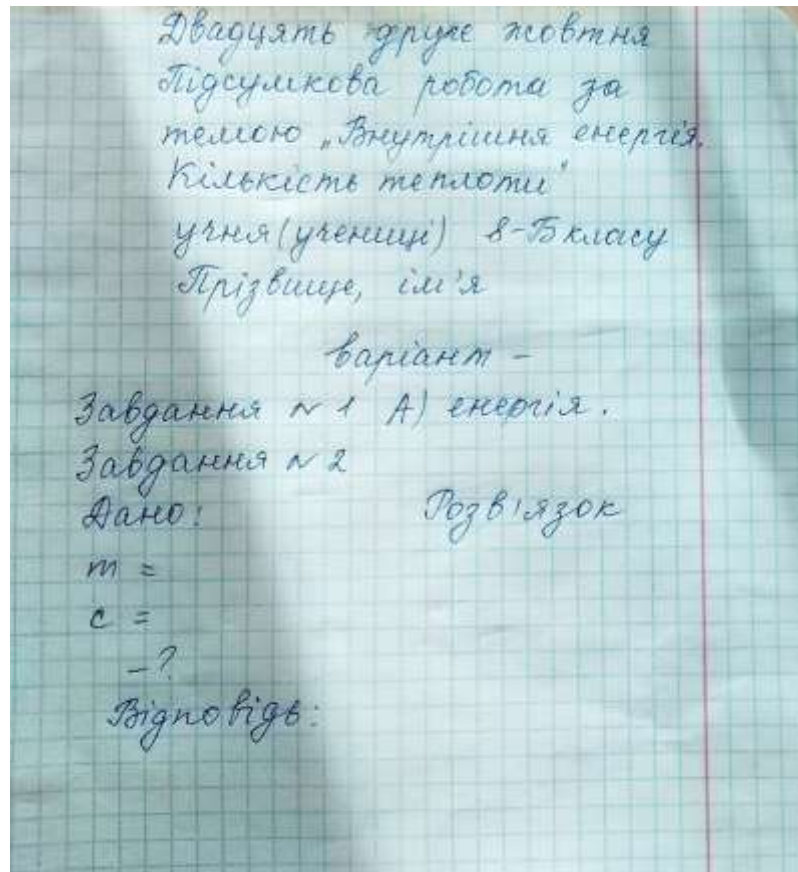 Двадцять друге жовтня
Підсумкова робота за
темою „Внутрішня енергія.
Кількість теплоти"
учня (учениці) 8-Б класу
Прізвище, ім'я
варіант –
Завдання №1 А) енергія.
Завдання №2
Дано: Розв'язок
m =
c =
–?
Відповідь: